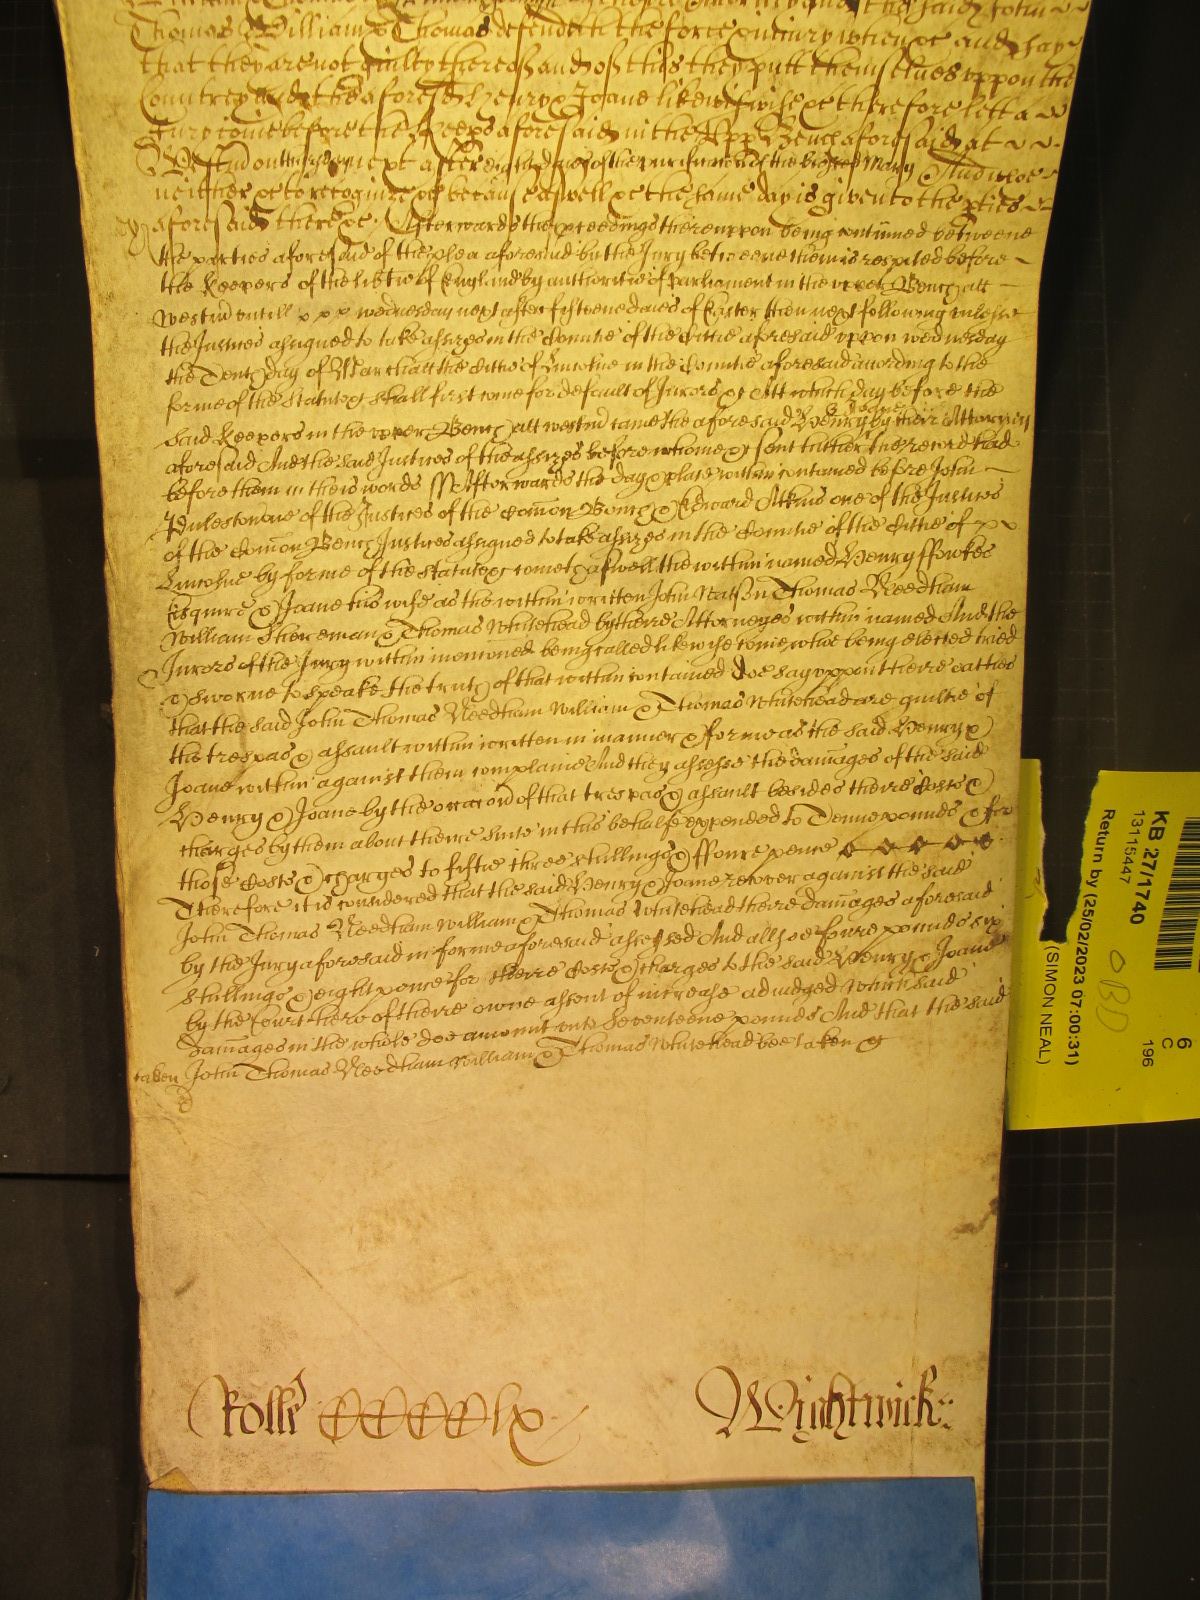 Thomas William & Thomas defendeth the force & iniury when &c and say
that they are not guilty thereof and of this they putt themselues vppon the
Countrey and the aforesd Henry & Joane likewise &c therefore lett a
Jury come before the Keeps aforesaid in the Vpp Bench aforesaid at
Westm on after eight daies of the purificacon of the blessed Mary And whoe
neither &c to recognize &c because aswell &c the same day is given to the pties
aforesaid there &c. Afterwards the pceedings thereuppon being contynued betweene
the parties aforesaid of the plea aforesaid by the Jury betweene them is respited before
the Keepers of the libtie of England by authoritie of parliament in the vpper Bench att
westm vntill x x x wednesday next after fifteene daies of Easter then next following vnlesse
the Justices assigned to take assizes in the Countie of the Cittie aforesaid vppon wednesday
the Tenth day of March att the Cittie of Lincolne in the Countie aforesaid according to the
forme of the statute &c shall first come for default of Jurors &c Att which day before the
said Keepers in the vpper Bench att westm came the aforesaid Henry & Joane by their Attorney
aforesaid And the said Justices of the assizes before whome &c sent hither there record had
before them in theis words ss Afterwards the day & place within contained before John
Puleston one of the Justices of the Comon Bench & Edward Atkins one of the Justices
of the Comon Bench Justices assigned to take assizes in the Countie of the Cittie of
Lincolne by forme of the statute &c cometh aswell the within named Henry ffowkes
Esquire & Joane his wife as the within written John Watson Thomas Needham
William Shereman & Thomas Whitehead by theire Attorneyes within named And the
Jurors of the Jury within mencioned being called likewise come whoe being elected tried
& sworne to speake the truth of that within contained doe say vppon theire oathes
that the said John Thomas Needham William & Thomas Whitehead are guiltie of
the trespas & assault within written in manner & forme as the said Henry &
Joane within against them complaine And they assesse the damages of the said
Henry & Joane by the occacon of that trespas & assault besides theire Costs &
charges by them about theire suite in this behalfe expended to Tenne pounds & for
those Costs & charges to fiftie three shillings & ffoure pence
Therefore it is considered that the said Henry & Joane recover against the said
John Thomas Needham William & Thomas Whitehead theire damages aforesaid
by the Jury aforesaid in forme aforesaid assessed And allsoe foure pounds six
shillings & eight pence for theire Costs & charges to the said Henry & Joane
by the Court here of theire owne assent of increase adiudged which said
damages in the whole doe amount vnto seventeene pounds And that the said
taken John Thomas Needham William & Thomas Whitehead bee taken &c
Rolle CCCClx
Wightwick
KB 27/1740
13115447
Return by (25/02/2023 07:00:31)
(SIMON NEAL)
OBD
6
C
196